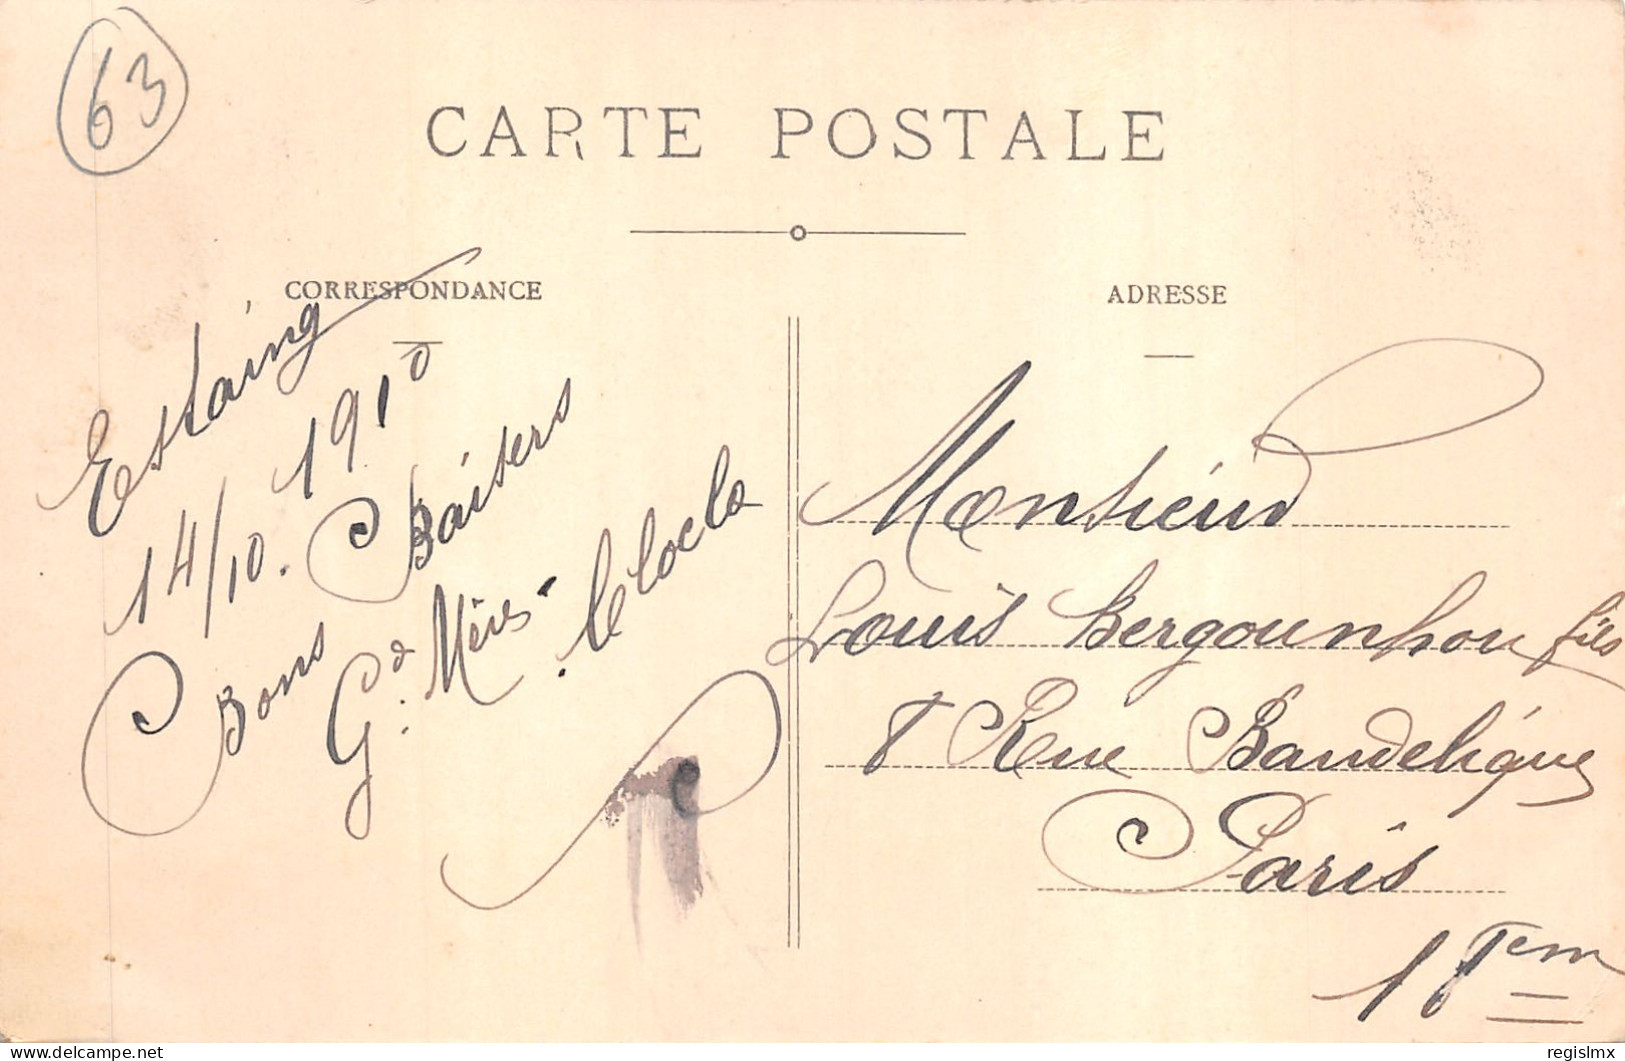 63
CARTE POSTALE
CORRESPONDANCE
ADRESSE
Estaing
14/10. 1910
Bons Baisers
Gd. Mère
Monsieur
Louis Bergounhou fils
8 Rue Baudelique
Paris
18em
delcampe.net
regislmx